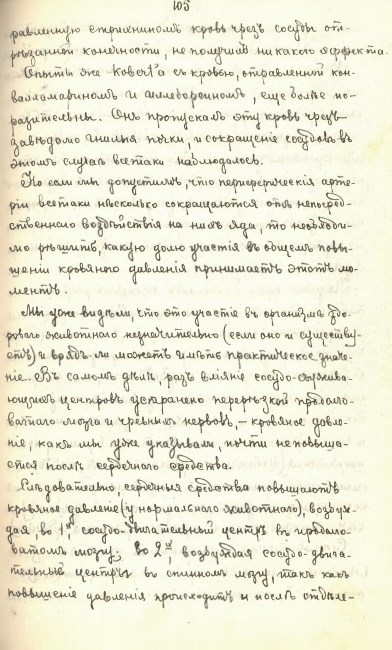 105
равленную стрихниномъ кровь чрезъ сосуды отрѣ-
рѣзанной конечности, не получилъ никакого эффекта.
Опыты же Kobert'а съ кровью, отравленной кон-
валламариномъ и геллебореиномъ, еще болѣе по-
разительны. Онъ пропускалъ эту кровь чрезъ
завѣдомо гнилыя почки, и сокращеніе сосудовъ въ
этомъ случаѣ всетаки наблюдалось.
Но если мы допустимъ, что периферическія арте-
ріи всетаки нѣсколько сокращаются отъ непосред-
ственнаго воздѣйствія на нихъ яда, то необходи-
мо рѣшить, какую долю участія въ общемъ повы-
шеніи кровяного давленія принимаетъ этотъ мо-
ментъ.
Мы уже видѣли, что это участіе въ организмѣ здо-
роваго животнаго незначительно (если оно и существу-
етъ) и врядъ-ли можетъ имѣть практическое значе-
ніе. Въ самомъ дѣлѣ, разъ вліяніе сосудо-суживаю-
ющихъ центровъ устранено перерѣзкой продолго-
ватаго мозга и чревныхъ нервовъ, – кровяное давле-
ніе, какъ мы уже указывали, почти не повыша-
ется послѣ сердечнаго средства.
Слѣдовательно, сердечныя средства повышаютъ
кровяное давленіе (у нормальнаго животнаго), возбуж-
дая, во 1ыхъ, сосудо-двигательный центръ въ продолго-
ватомъ мозгу; во 2ыхъ, возбуждая сосудо-двига-
тельные центры въ спинномъ мозгу, такъ какъ
повышеніе давленія происходитъ и послѣ отдѣле-